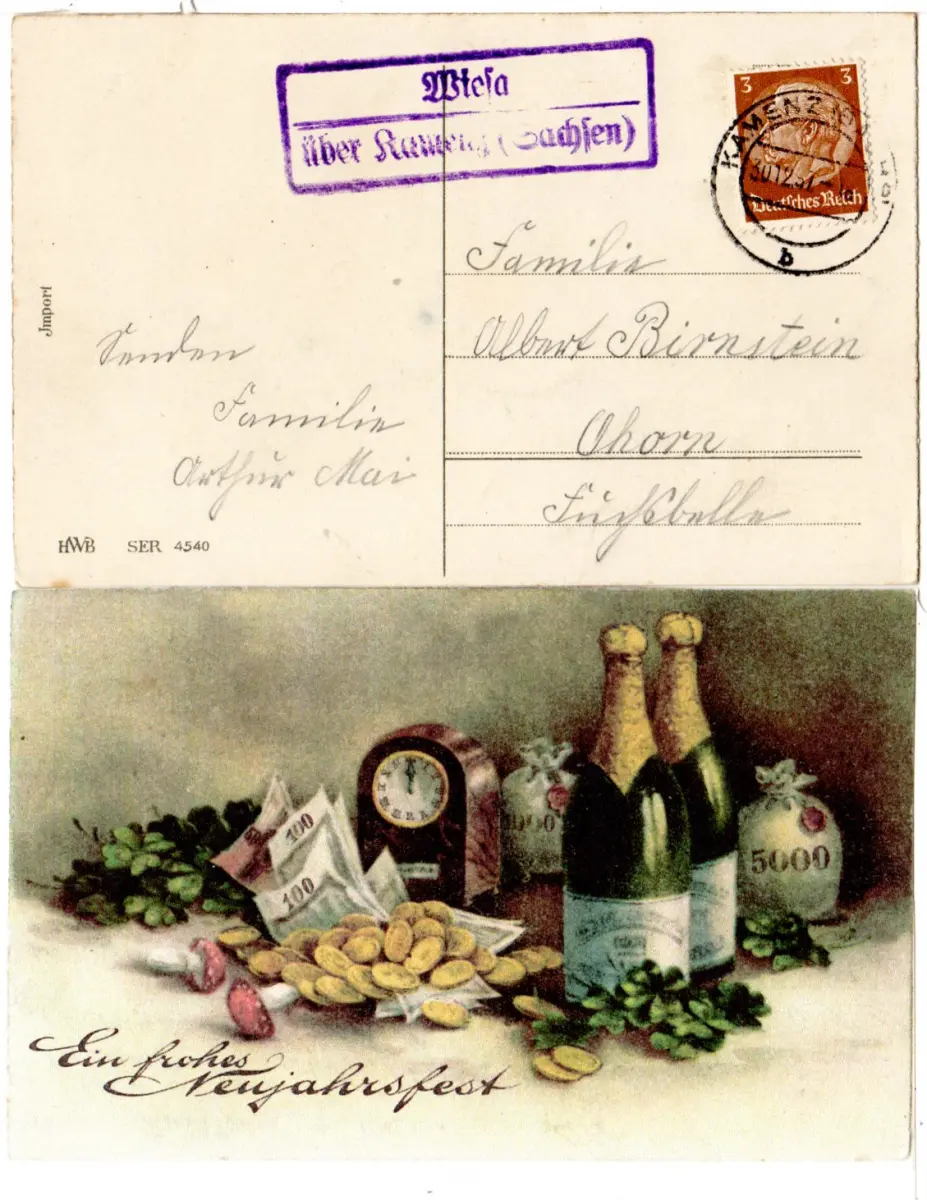 Wiesa
über Kamenz (Sachsen)
3 3
KAMENZ
30.12.37
Deutsches Reich
b
Import
Familie
Albert Birnstein
Ohorn
Fuchsbelle
Senden
Familie
Arthur Mai
HWB SER 4540
100
100
5000
Ein frohes
Neujahrsfest